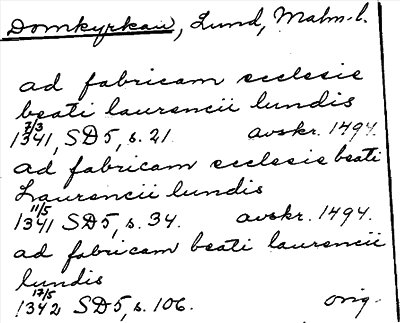 Domkyrkan, Lund, Malm.l.
ad fabricam ecclesie
beati laurencii lundis
1341 7/3, SD5, s. 21. avskr. 1494.
ad fabricam ecclesie beati
Laurencii lundis
1341 11/5 SD5, s. 34. avskr. 1494.
ad fabricam beati laurencii
lundis
1342 17/5 SD5, s. 106. orig.